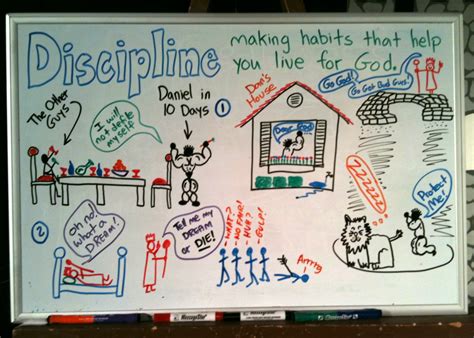 Discipline
making habits that help
you live for God.
The Other
Guys
I will
not defile
myself
Daniel in
10 Days
1
Dan's
House
Dear God
Go God!
Go Get Bad Guys!
ZZZZZZ
Protect
Me!
2
Oh no!
What a
DREAM!
Tell me my
DREAM
or DIE!
- WHAT?
- NO FAIR!
- HUH?
- GULP!
Arrrrg